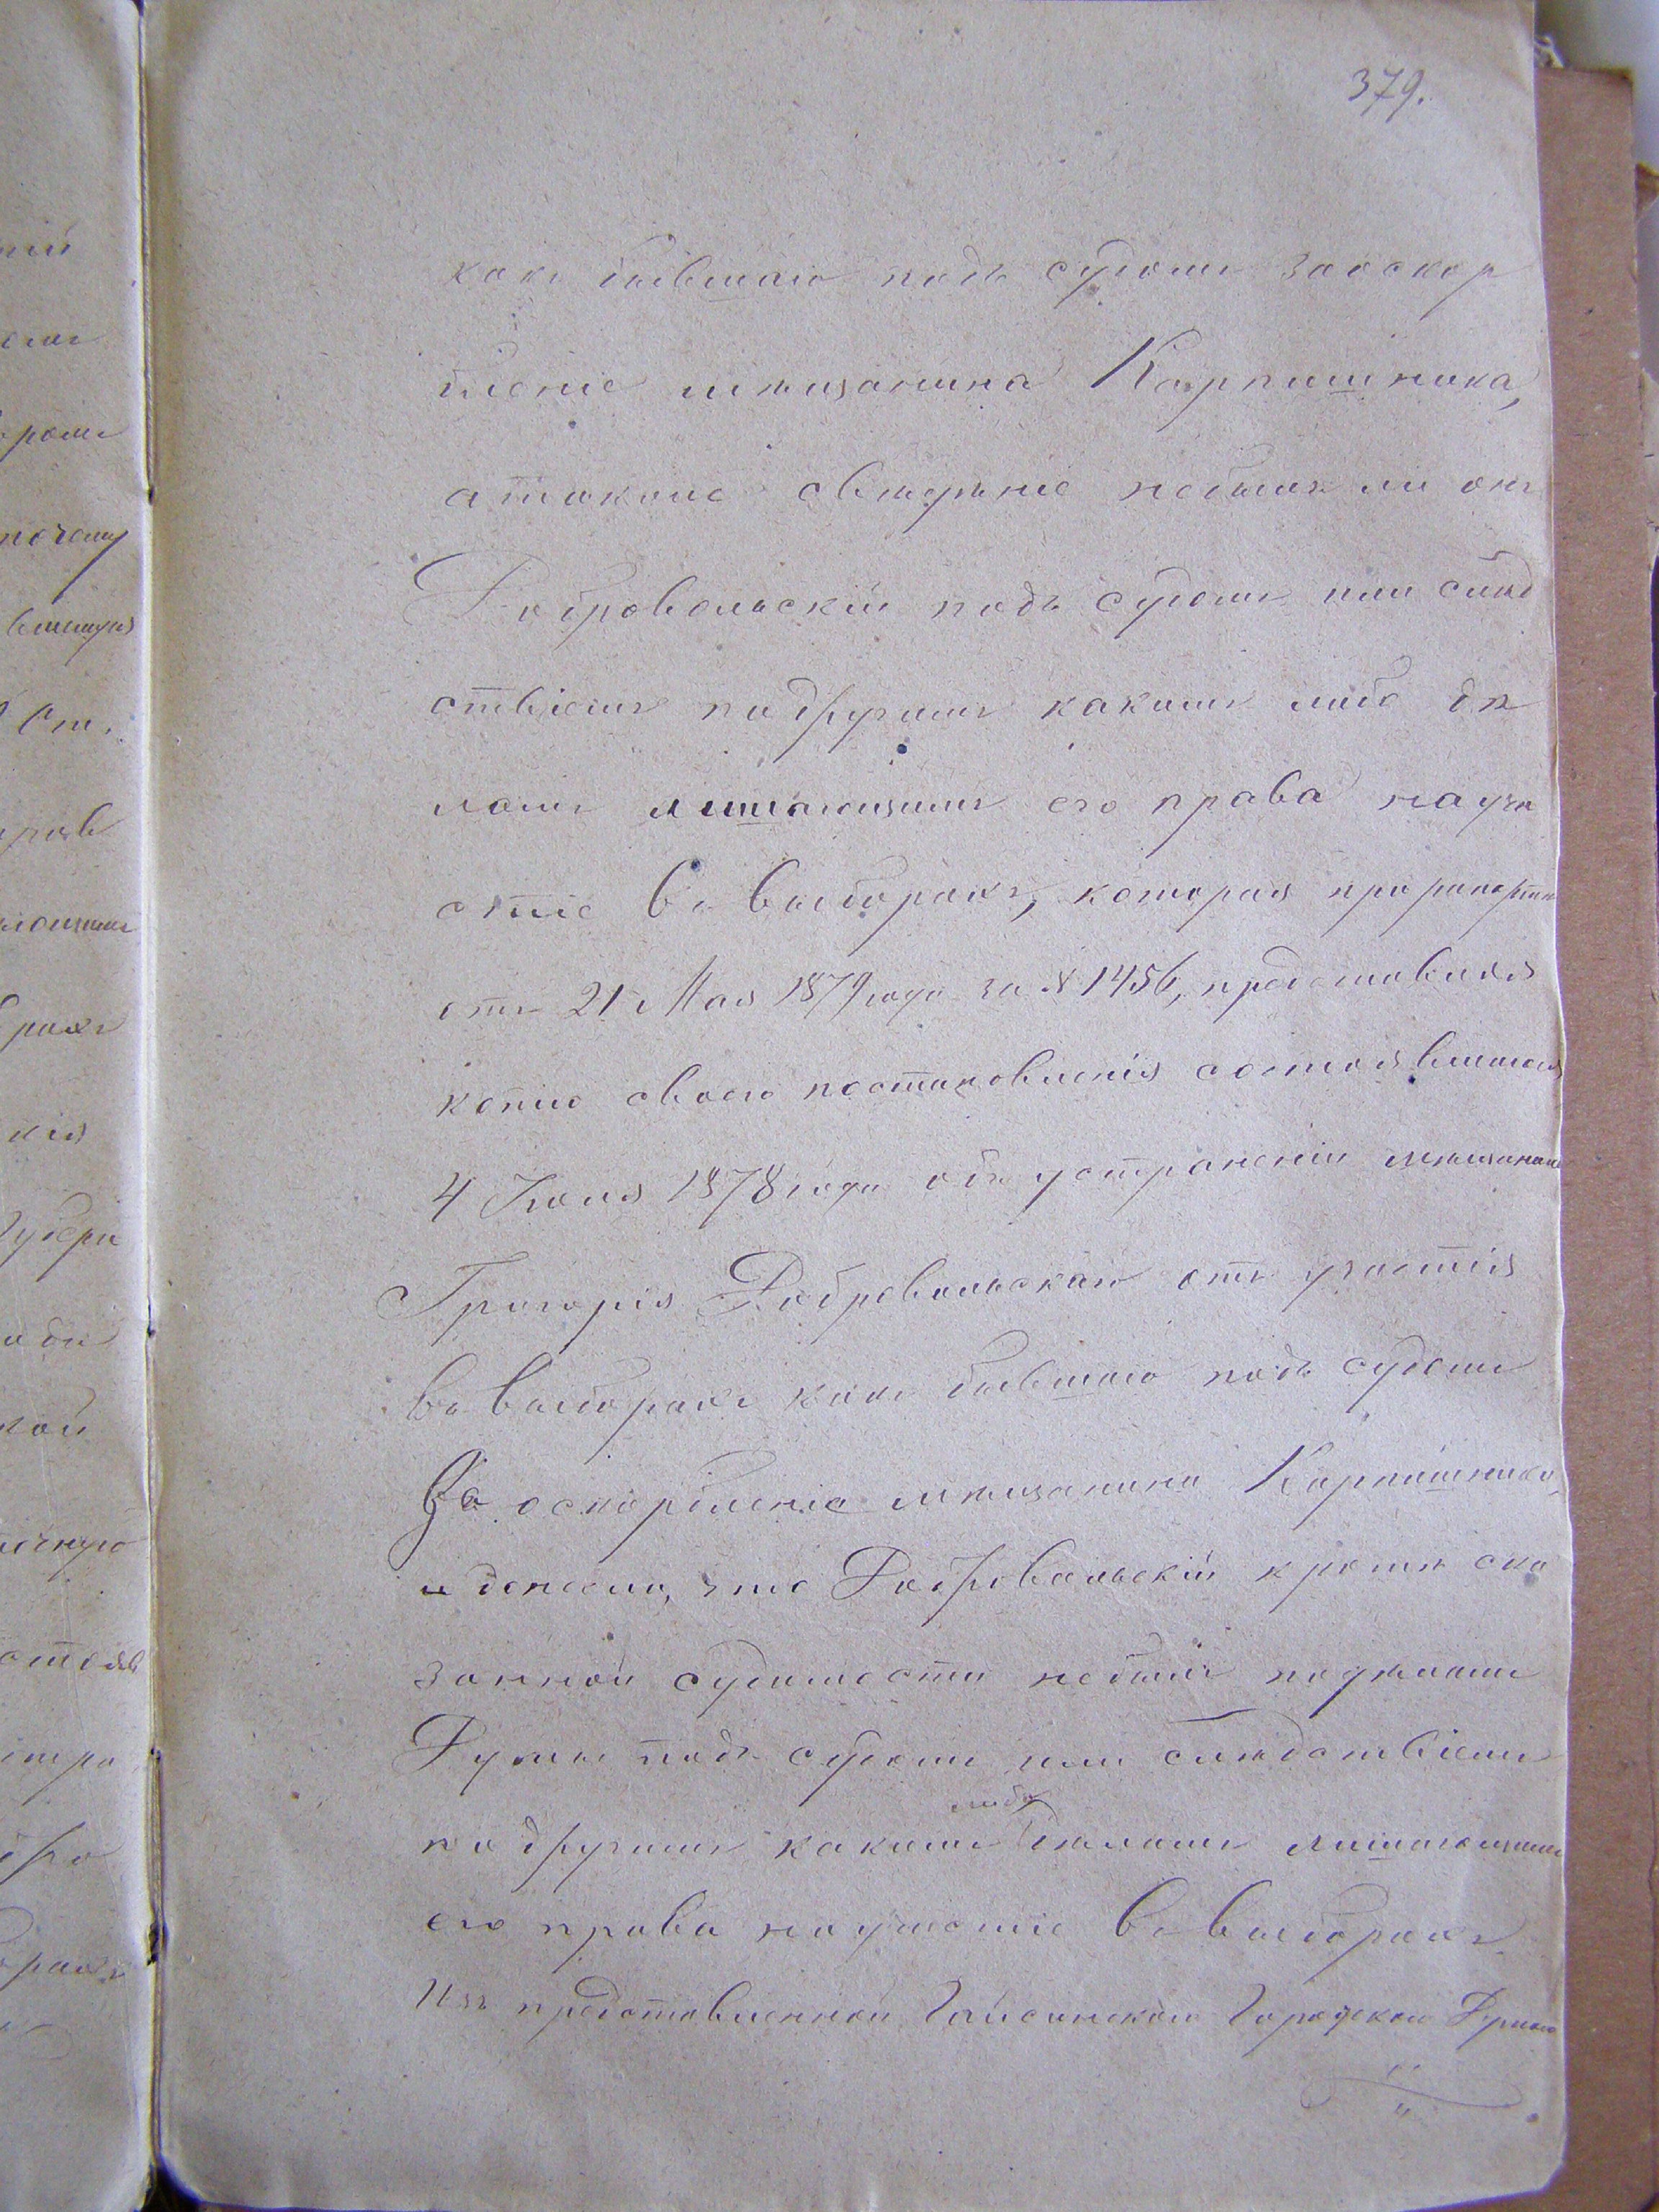 379.
какъ бывшаго подъ судомъ заоскор
бленіе мѣщанина Карпишника,
атакже свѣдѣніе небылъ ли онъ
Добровольскій подъ судомъ или слѣд
ствіемъ подругимъ какимъ либо дѣ
ламъ лишающимъ его права науча
стіе въ выборахъ, которая при рапортѣ
отъ 21 Мая 1879 года за № 1456, представляя
копію своего постановленія состоявшагося
4 Іюня 1878 года объ устраненіи мѣщанина
Григорія Добровольскаго отъ участія
въ выборахъ какъ бывшаго подъ судомъ
За оскорбленіе мѣщанина Карпишника,
и донесла, что Добровольскій кромѣ ска
занной судимости небылъ
Думы подъ судомъ или слѣдствіемъ
подругимъ какимъ либо дѣламъ лишающимъ
его права научастіе въ выборахъ
Изъ представленной Гайсинской Городской Думою